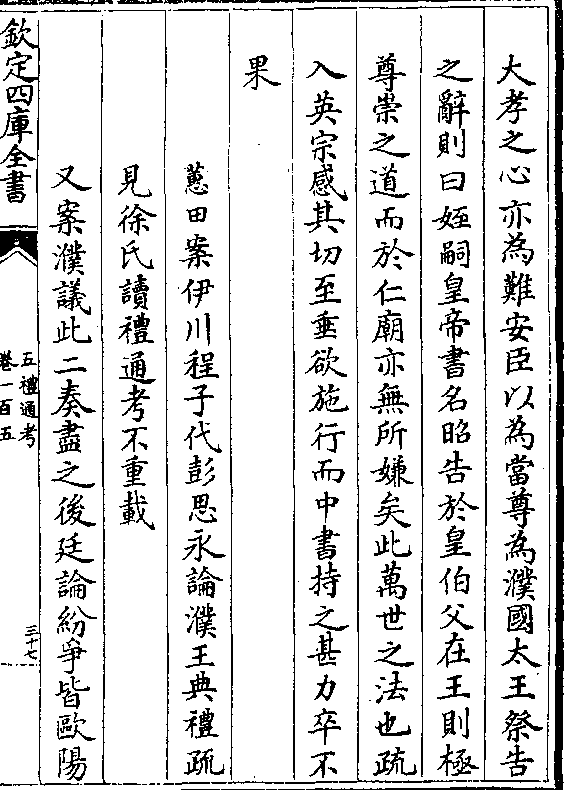 大孝之心亦為難安臣以為當尊為濮國太王祭告
之辭則曰姪嗣皇帝書名昭告於皇伯父在王則極
尊崇之道而於仁廟亦無所嫌矣此萬世之法也疏
入英宗感其切至垂欲施行而中書持之甚力卒不
果
蕙田案伊川程子代彭思永論濮王典禮疏
見徐氏讀禮通考不重載
又案濮議此二奏盡之後廷論紛爭皆歐陽
欽定四庫全書
五禮通考
卷一百五
三十七